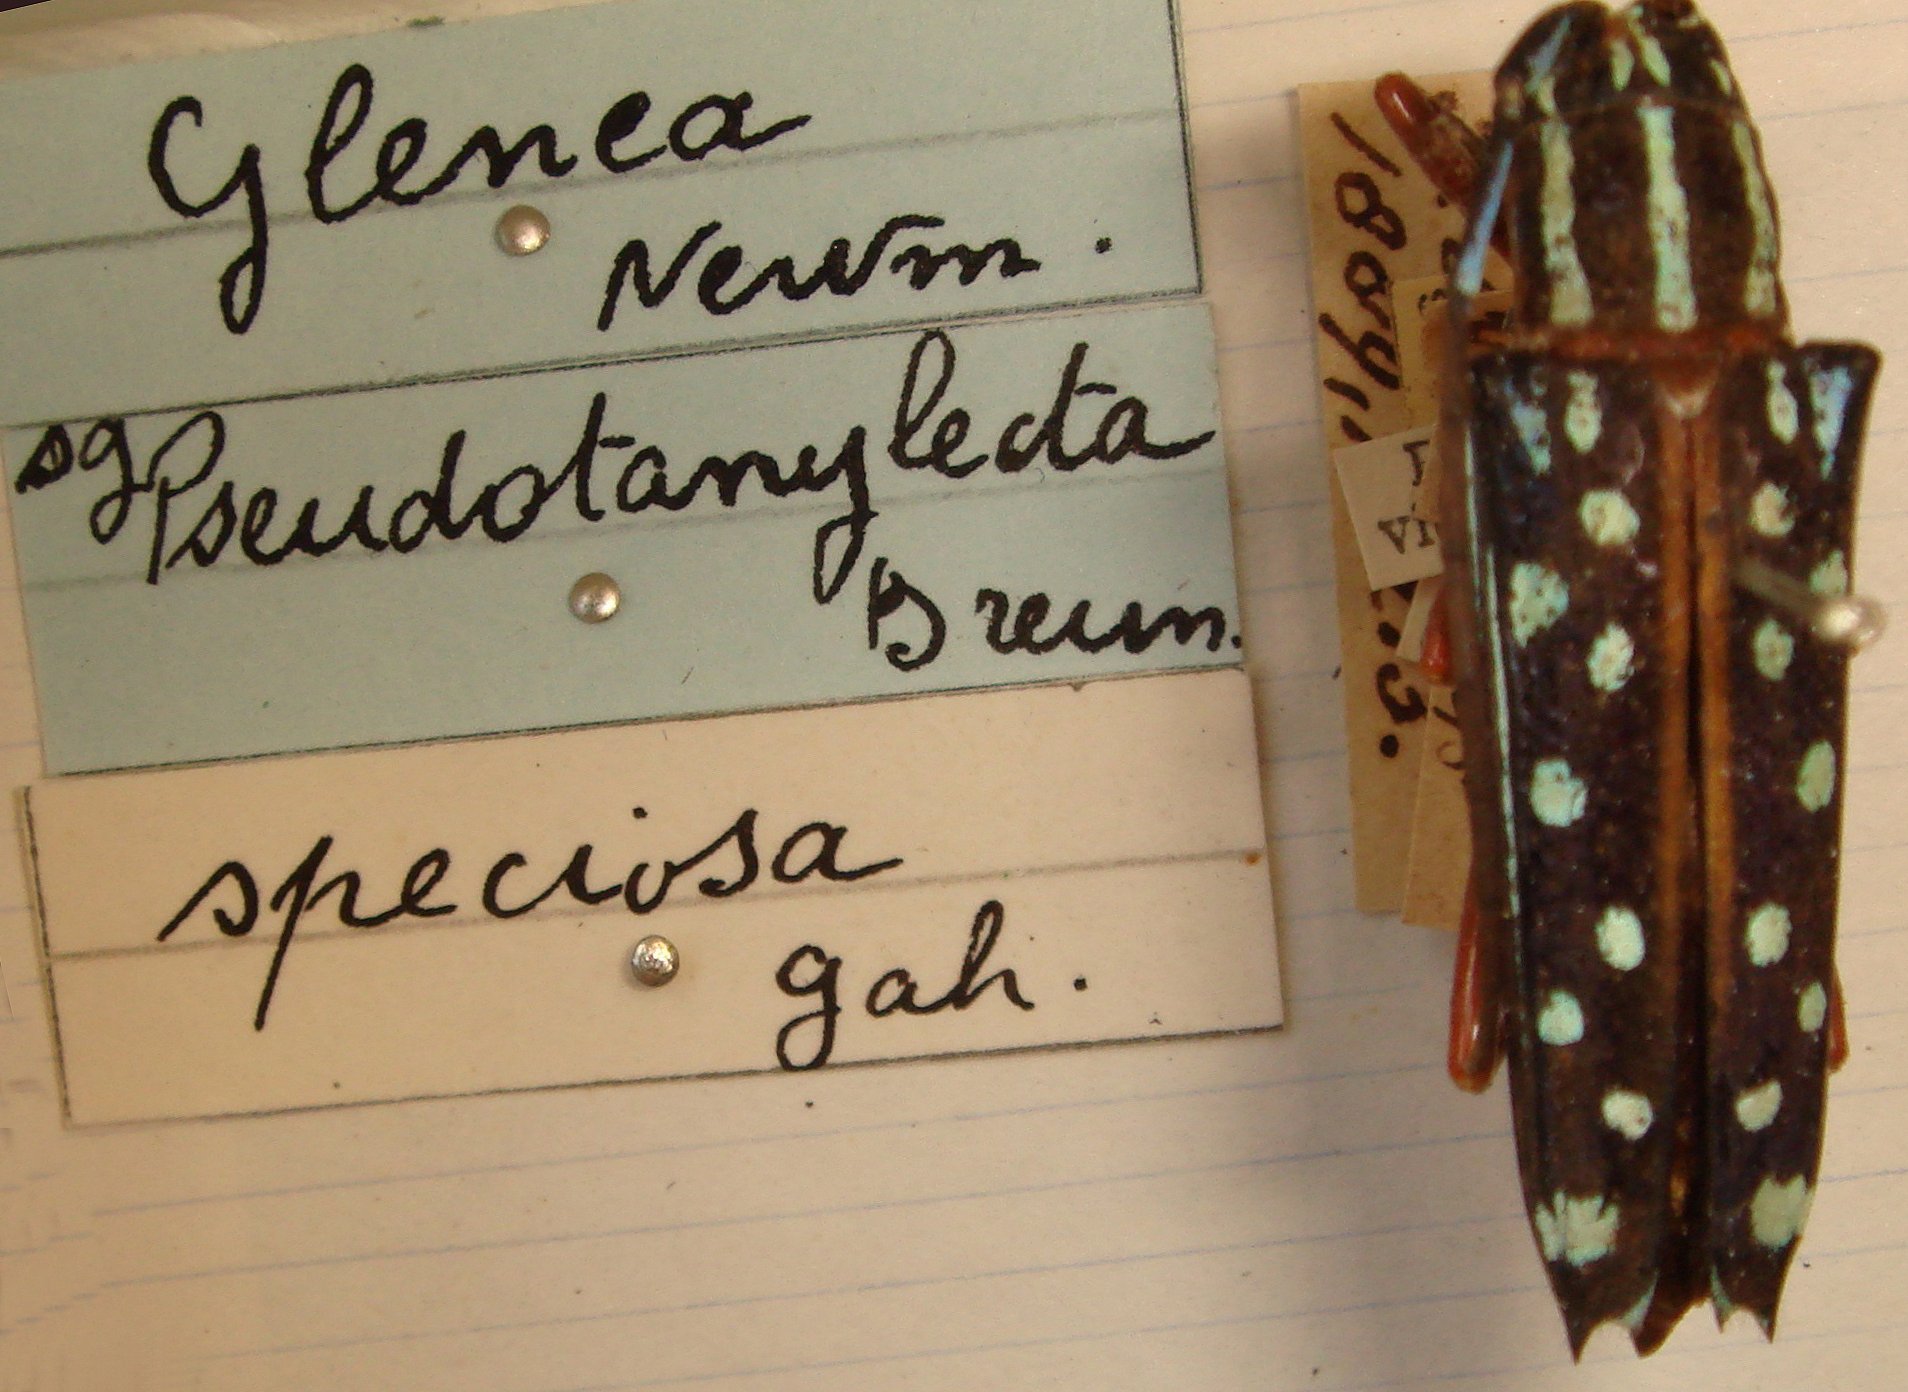 Glenea
Newm.
sg Pseudotanylecta
Breun.
speciosa
gah.